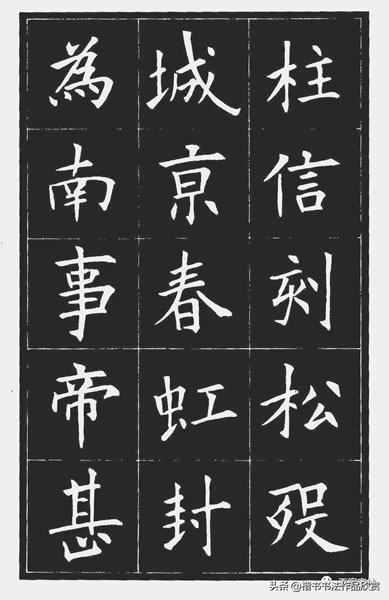 柱信刻松殁
城亰春虹封
為南事帝甚
头条 @楷书书法作品欣赏